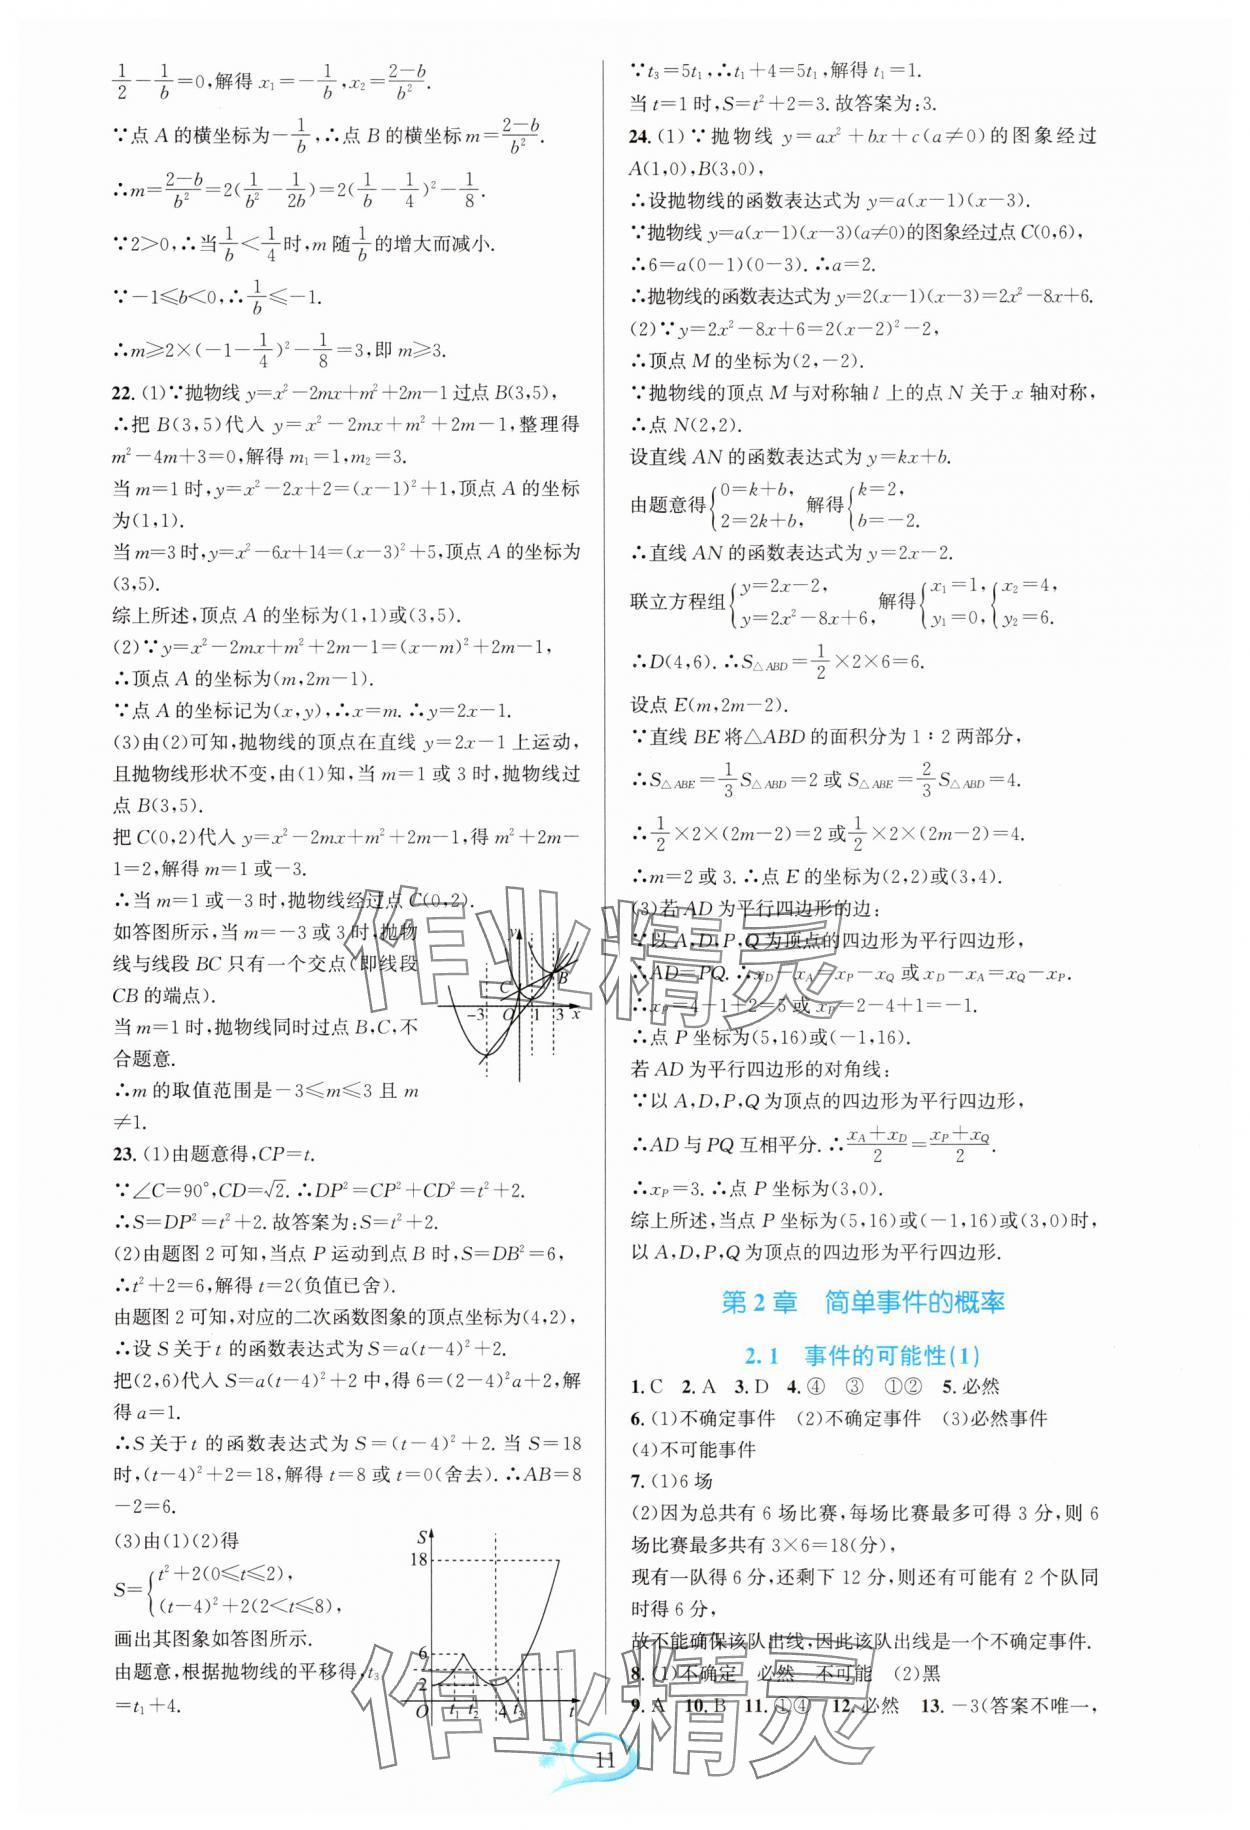 1/2－1/b＝0,解得 x₁＝－1/b,x₂＝(2－b)/b².
∵点 A 的横坐标为－1/b,∴点 B 的横坐标 m＝(2－b)/b².
∴m＝(2－b)/b²＝2(1/b²－1/2b)＝2(1/b－1/4)²－1/8.
∵2＞0,∴当1/b＜1/4时,m 随1/b的增大而减小.
∵－1≤b＜0,∴1/b≤－1.
∴m≥2×(－1－1/4)²－1/8＝3,即 m≥3.
22. (1)∵抛物线 y＝x²－2mx＋m²＋2m－1 过点 B(3,5),
∴把 B(3,5)代入 y＝x²－2mx＋m²＋2m－1,整理得
m²－4m＋3＝0,解得 m₁＝1,m₂＝3.
当 m＝1 时,y＝x²－2x＋2＝(x－1)²＋1,顶点 A 的坐标
为(1,1).
当 m＝3 时,y＝x²－6x＋14＝(x－3)²＋5,顶点 A 的坐标为
(3,5).
综上所述,顶点 A 的坐标为(1,1)或(3,5).
(2)∵y＝x²－2mx＋m²＋2m－1＝(x－m)²＋2m－1,
∴顶点 A 的坐标为(m,2m－1).
∵点 A 的坐标记为(x,y),∴x＝m.∴y＝2x－1.
(3)由(2)可知,抛物线的顶点在直线 y＝2x－1 上运动,
且抛物线形状不变,由(1)知,当 m＝1 或 3 时,抛物线过
点 B(3,5).
把 C(0,2)代入 y＝x²－2mx＋m²＋2m－1,得 m²＋2m－
1＝2,解得 m＝1 或－3.
∴当 m＝1 或－3 时,抛物线经过点 C(0,2).
如答图所示,当 m＝－3 或 3 时,抛物
线与线段 BC 只有一个交点(即线段
CB 的端点).
当 m＝1 时,抛物线同时过点 B,C,不
合题意.
∴m 的取值范围是－3≤m≤3 且 m
≠1.
y
C
B
－3 O 1 3 x
23. (1)由题意得,CP＝t.
∵∠C＝90°,CD＝√2.∴DP²＝CP²＋CD²＝t²＋2.
∴S＝DP²＝t²＋2.故答案为:S＝t²＋2.
(2)由题图 2 可知,当点 P 运动到点 B 时,S＝DB²＝6,
∴t²＋2＝6,解得 t＝2(负值已舍).
由题图 2 可知,对应的二次函数图象的顶点坐标为(4,2),
∴设 S 关于 t 的函数表达式为 S＝a(t－4)²＋2.
把(2,6)代入 S＝a(t－4)²＋2 中,得 6＝(2－4)²a＋2,解
得 a＝1.
∴S 关于 t 的函数表达式为 S＝(t－4)²＋2. 当 S＝18
时,(t－4)²＋2＝18,解得 t＝8 或 t＝0(舍去).∴AB＝8
－2＝6.
(3)由(1)(2)得
S＝{t²＋2(0≤t≤2),
(t－4)²＋2(2＜t≤8),
画出其图象如答图所示.
由题意,根据抛物线的平移得,t₃
＝t₁＋4.
S
18
6
2
O t₁ t₂ 4 t₃ t
∵t₃＝5t₁,∴t₁＋4＝5t₁,解得 t₁＝1.
当 t＝1 时,S＝t²＋2＝3.故答案为:3.
24. (1)∵抛物线 y＝ax²＋bx＋c(a≠0)的图象经过
A(1,0),B(3,0),
∴设抛物线的函数表达式为 y＝a(x－1)(x－3).
∵抛物线 y＝a(x－1)(x－3)(a≠0)的图象经过点 C(0,6),
∴6＝a(0－1)(0－3).∴a＝2.
∴抛物线的函数表达式为 y＝2(x－1)(x－3)＝2x²－8x＋6.
(2)∵y＝2x²－8x＋6＝2(x－2)²－2,
∴顶点 M 的坐标为(2,－2).
∵抛物线的顶点 M 与对称轴 l 上的点 N 关于 x 轴对称,
∴点 N(2,2).
设直线 AN 的函数表达式为 y＝kx＋b.
由题意得{0＝k＋b, 2＝2k＋b, 解得{k＝2, b＝－2.
∴直线 AN 的函数表达式为 y＝2x－2.
联立方程组{y＝2x－2, y＝2x²－8x＋6, 解得{x₁＝1, y₁＝0,{x₂＝4, y₂＝6.
∴D(4,6).∴S△ABD＝1/2×2×6＝6.
设点 E(m,2m－2).
∵直线 BE 将△ABD 的面积分为 1∶2 两部分,
∴S△ABE＝1/3S△ABD＝2 或 S△ABE＝2/3S△ABD＝4.
∴1/2×2×(2m－2)＝2 或1/2×2×(2m－2)＝4.
∴m＝2 或 3.∴点 E 的坐标为(2,2)或(3,4).
(3)若 AD 为平行四边形的边:
∵以 A,D,P,Q 为顶点的四边形为平行四边形,
∴AD＝PQ.∴x_D－x_A＝x_P－x_Q 或 x_D－x_A＝x_Q－x_P.
∴x_P＝4－1＋2＝5 或 x_P＝2－4＋1＝－1.
∴点 P 坐标为(5,16)或(－1,16).
若 AD 为平行四边形的对角线:
∵以 A,D,P,Q 为顶点的四边形为平行四边形,
∴AD 与 PQ 互相平分.∴(x_A＋x_D)/2＝(x_P＋x_Q)/2.
∴x_P＝3.∴点 P 坐标为(3,0).
综上所述,当点 P 坐标为(5,16)或(－1,16)或(3,0)时,
以 A,D,P,Q 为顶点的四边形为平行四边形.
第 2 章 简单事件的概率
2.1 事件的可能性(1)
1.C 2.A 3.D 4.④ ③ ①② 5.必然
6.(1)不确定事件 (2)不确定事件 (3)必然事件
(4)不可能事件
7.(1)6 场
(2)因为总共有 6 场比赛,每场比赛最多可得 3 分,则 6
场比赛最多共有 3×6＝18(分),
现有一队得 6 分,还剩下 12 分,则还有可能有 2 个队同
时得 6 分,
故不能确保该队出线,因此该队出线是一个不确定事件.
8.(1)不确定 必然 不可能 (2)黑
9.A 10.B 11.①④ 12.必然 13.－3(答案不唯一,
作业精灵
作业精灵
11